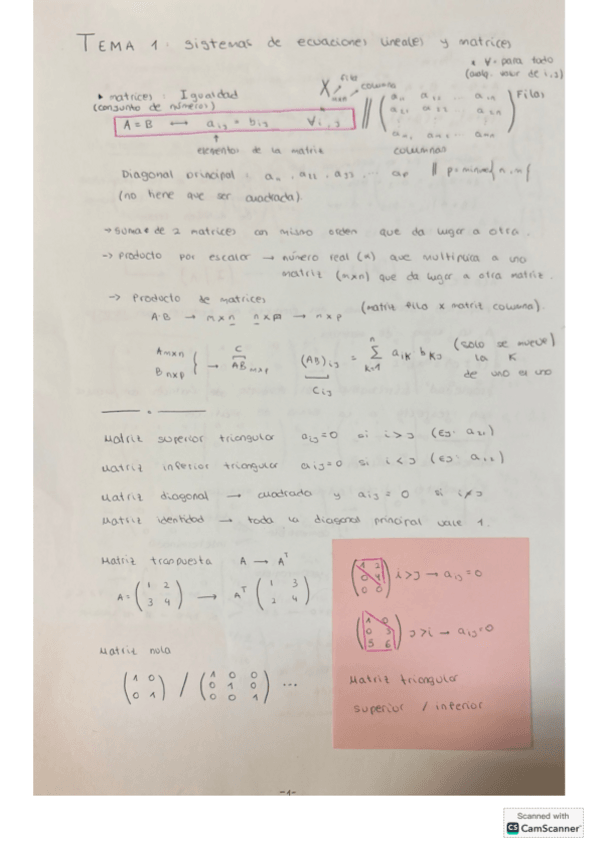 TEMA 1: sistemas de ecuaciones lineales y matrices
* ∀ = para todo
(cualq. valor de i,j)
▸ matrices: Igualdad
(conjunto de números)
X mxn
fila
columna
A = B ⟷ aij = bij ∀i,j
Filas
columnas
elementos de la matriz
Diagonal principal: a11, a22, a33 ... ap // p = mínimo{n,m}
(no tiene que ser cuadrada).
→ Suma de 2 matrices con mismo orden que da lugar a otra.
→ Producto por escalar → número real (α) que multiplica a una
matriz (mxn) que da lugar a otra matriz.
→ Producto de matrices (matriz fila x matriz columna).
A·B → mxn nxp → mxp
C
Amxn
Bnxp } → ABmxp
(AB)ij = Σ aik bkj
n
k=1
Cij
(solo se mueve)
la K
de uno en uno
Matriz superior triangular aij=0 si i>j (Ej: a21)
Matriz inferior triangular aij=0 si i<j (Ej: a12)
Matriz diagonal → cuadrada y aij = 0 si i≠j
Matriz identidad → toda la diagonal principal vale 1.
Matriz tranpuesta A → Aᵀ
A = (1 2
3 4) → Aᵀ (1 3
2 4)
Matriz nula
(1 0
0 1) / (1 0 0
0 1 0
0 0 1) ...
(1 2
0 4
0 0) i>j → aij = 0
(1 0
0 3
5 6) j>i → aij=0
Matriz triangular
superior / inferior
-1-
Scanned with
CS CamScanner